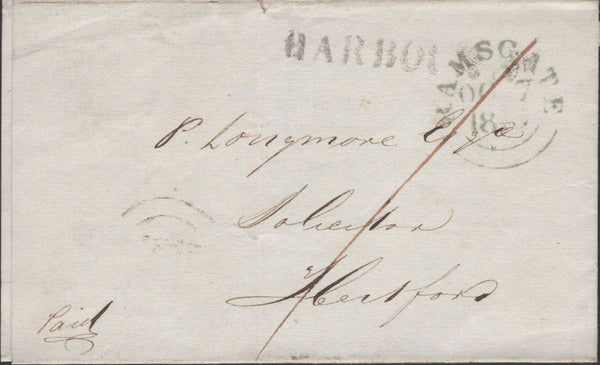 HARBOU
RAMSGATE
OC 7
184
P. Longmore Esqre
Solicitor
Hertford
Paid